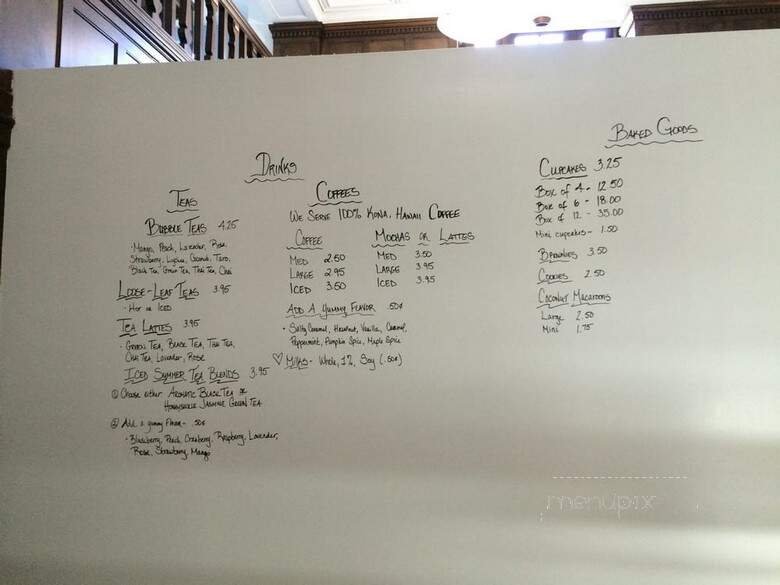 DRINKS
TEAS
BUBBLE TEAS 4.25
· Mango, Peach, Lavender, Rose,
Strawberry, Lychee, Coconut, Taro,
Black Tea, Green Tea, Thai Tea, Chai
LOOSE-LEAF TEAS 3.95
- HOT or ICED
TEA LATTES 3.95
· GREEN TEA, BLACK TEA, THAI TEA,
CHAI TEA, LAVENDER, ROSE
ICED SUMMER TEA BLENDS 3.95
① Choose either AROMATIC BLACK TEA or
HONEYSUCKLE JASMINE GREEN TEA
② Add a yummy flavor - .50¢
· Blackberry, Peach, Cranberry, Raspberry, Lavender,
Rose, Strawberry, Mango
COFFEES
WE SERVE 100% KONA, HAWAII COFFEE
COFFEE
MED 2.50
LARGE 2.95
ICED 3.50
MOCHAS OR LATTES
MED 3.50
LARGE 3.95
ICED 3.95
ADD A YUMMY FLAVOR .50¢
· Salty Caramel, Hazelnut, Vanilla, Caramel,
Peppermint, Pumpkin Spice, Maple Spice
♡ MILKS - Whole, 1%, Soy (.50¢)
BAKED GOODS
CUPCAKES 3.25
Box of 4 - 12.50
Box of 6 - 18.00
Box of 12 - 35.00
Mini cupcakes - 1.50
BROWNIES 3.50
COOKIES 2.50
COCONUT MACAROONS
Large 2.50
Mini 1.75
menupix